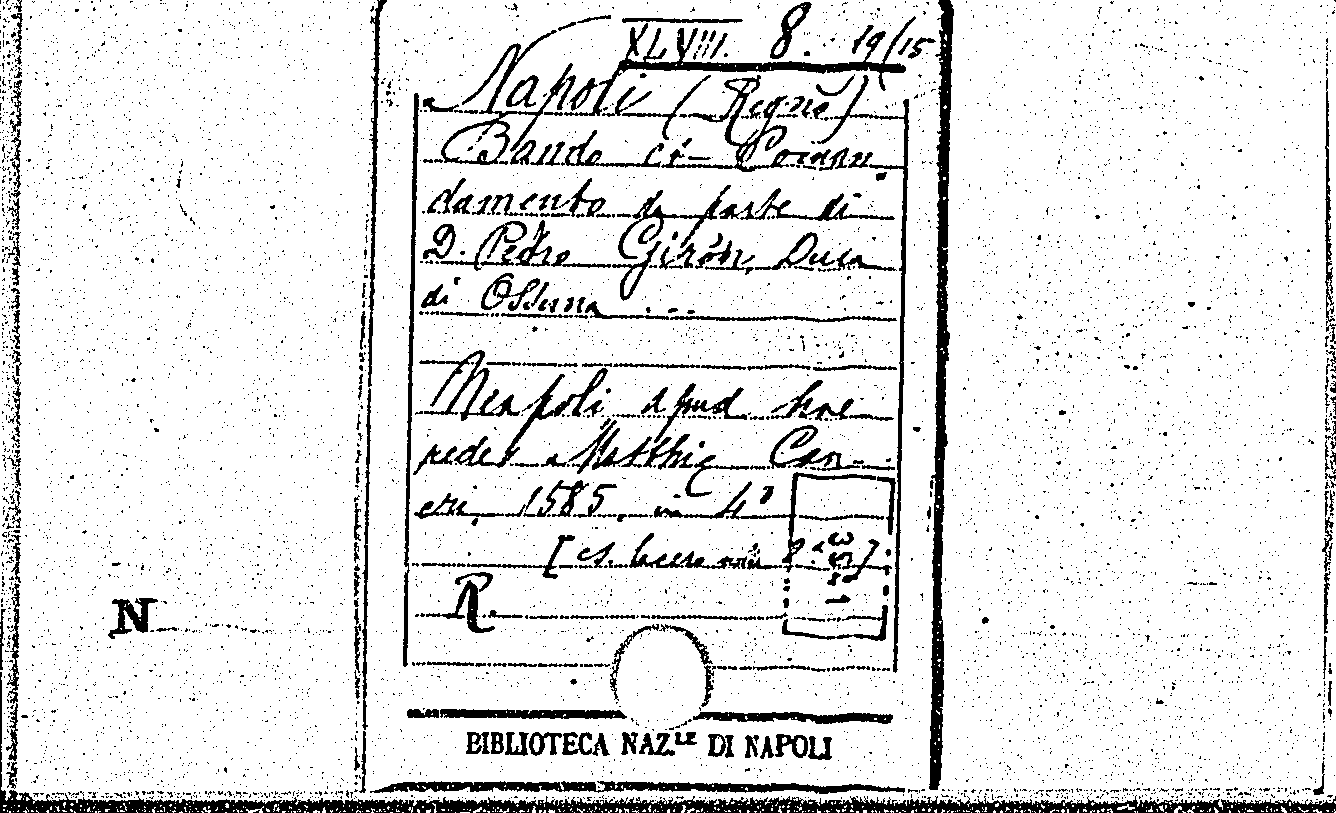 XLVIII. 8. 19/15
Napoli (Regno)
Bando et Coman
damento da parte di
D. Pedro Girón, Duca
di Ossuna ...
Neapoli apud hae
redes Matthiç Can-
cri, 1585, in 4º
[es. lacero
R.
N
BIBLIOTECA NAZ.LE DI NAPOLI